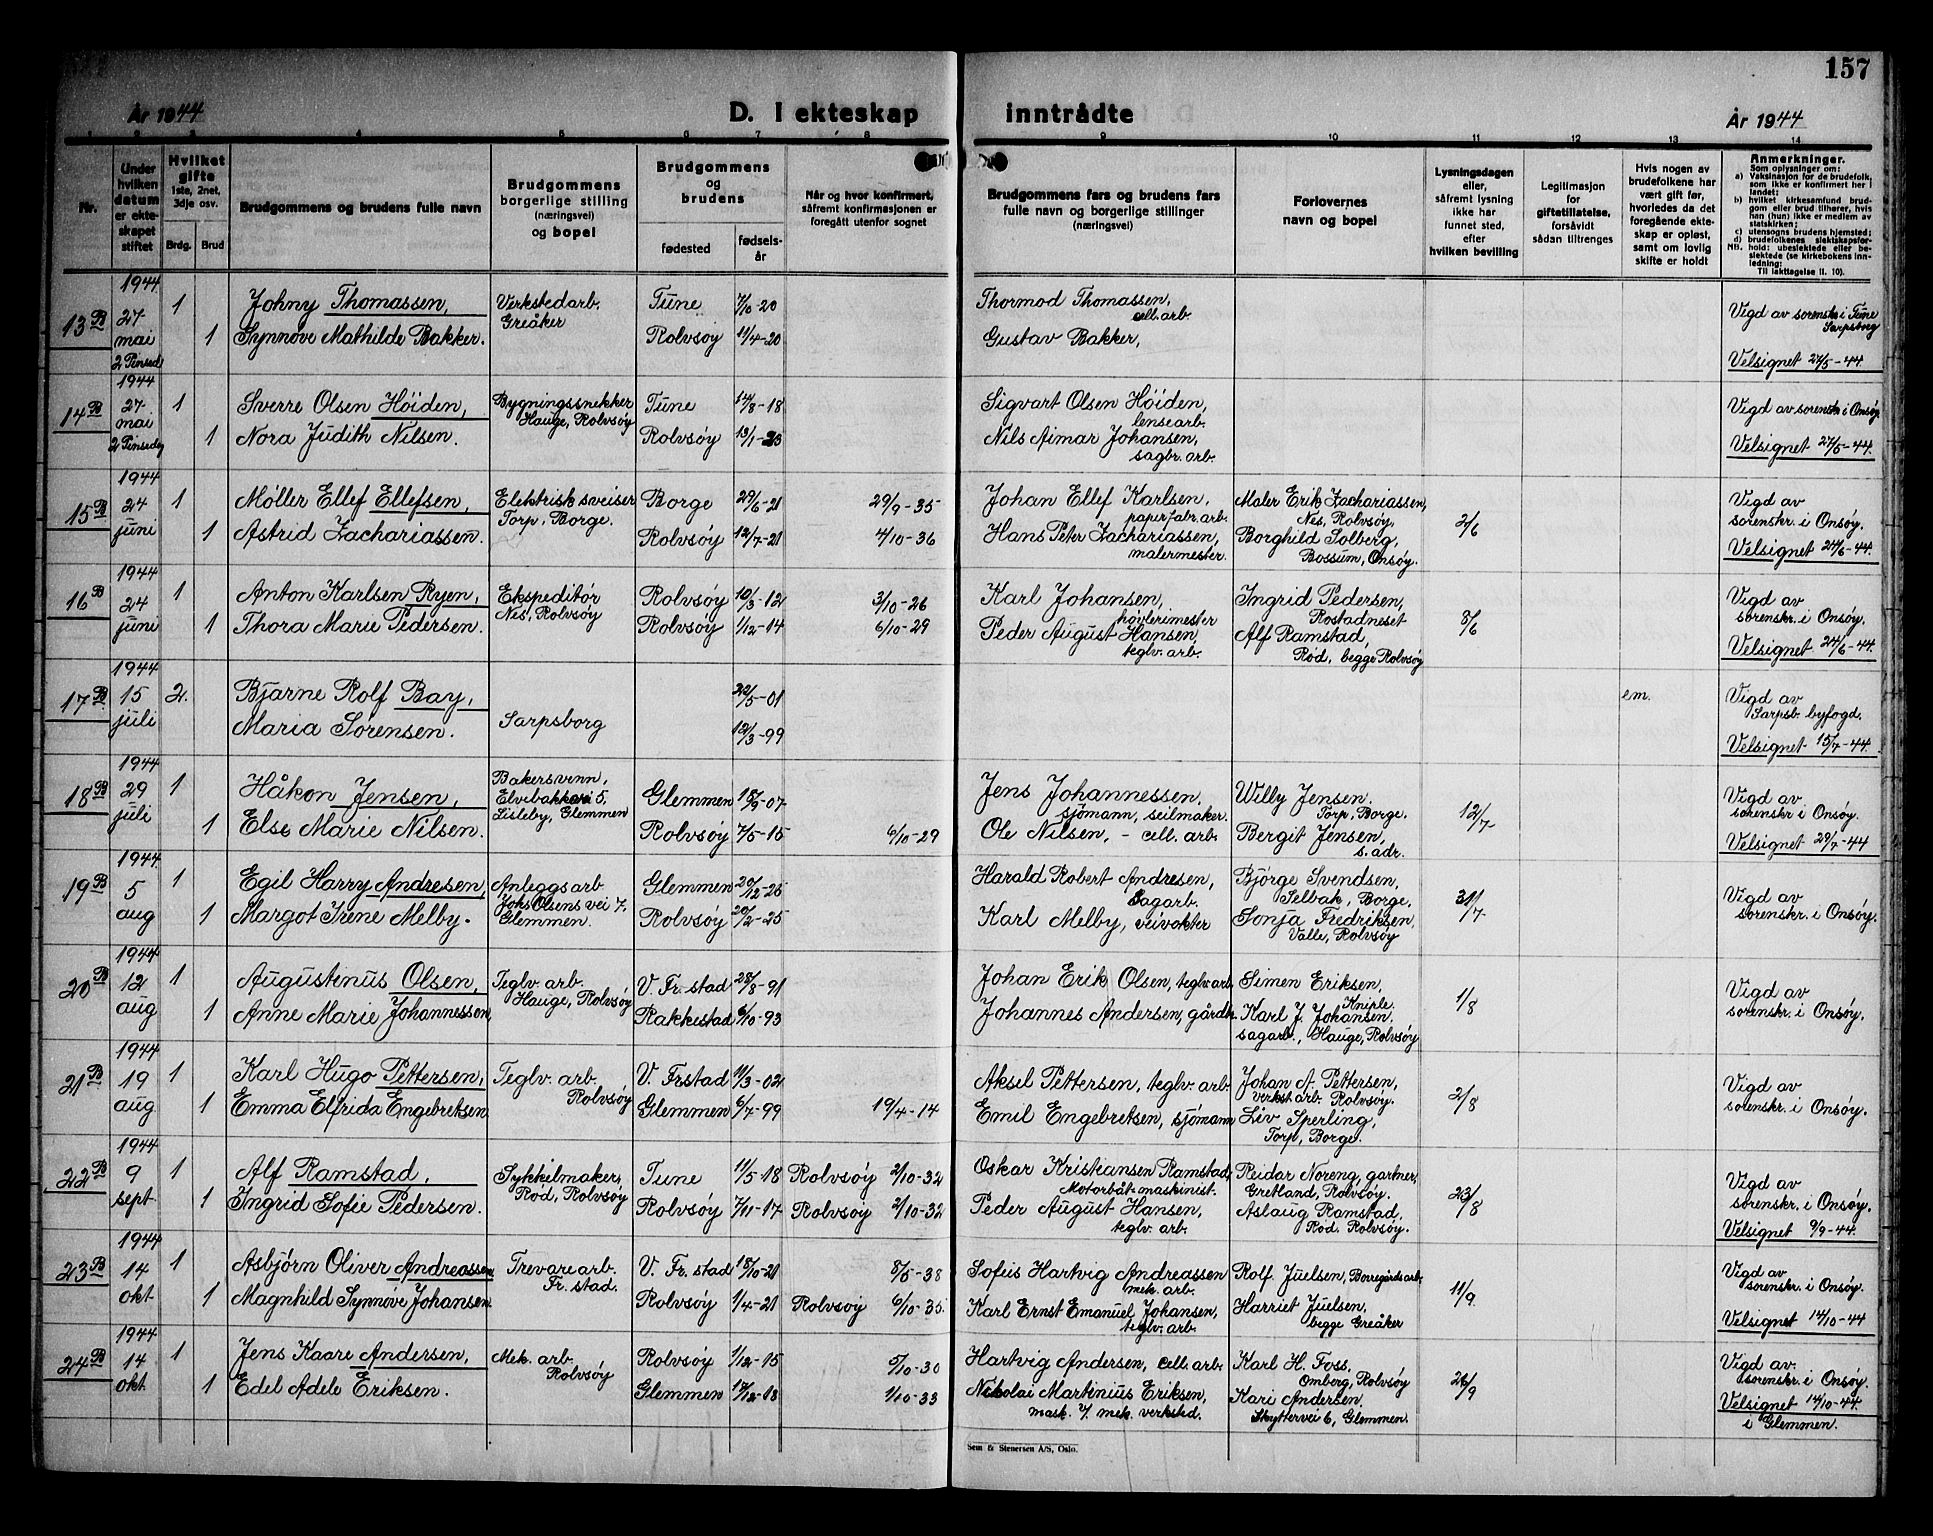 157
År 1944
D. I ekteskap inntrådte
År 1944
1 2 3 4 5 6 7 8 9 10 11 12 13 14
Nr.
Under hvilken datum er ekteskapet stiftet
Hvilket gifte 1ste, 2net, 3dje osv.
Brdg. Brud
Brudgommens og brudens fulle navn
Brudgommens borgerlige stilling (næringsvei) og bopel
Brudgommens og brudens
fødested
fødselsår
Når og hvor konfirmert, såfremt konfirmasjonen er foregått utenfor sognet
Brudgommens fars og brudens fars fulle navn og borgerlige stillinger (næringsvei)
Forlovernes navn og bopel
Lysningsdagen eller, såfremt lysning ikke har funnet sted, efter hvilken bevilling
Legitimasjon for giftetillatelse, forsåvidt sådan tiltrenges
Hvis nogen av brudefolkene har vært gift før, hvorledes da det foregående ekteskap er opløst, samt om lovlig skifte er holdt
Anmerkninger.
Som oplysninger om:
a) Vaksinasjon for de brudefolk, som ikke er konfirmert her i landet;
b) hvilket kirkesamfund brudgom eller brud tilhører, hvis han (hun) ikke er medlem av statskirken;
c) utensogns brudens hjemsted;
d) brudefolkenes slektskapsforhold: ubeslektede eller beslektede (se kirkebokens innledning:
NB. Til iakttagelse II. 10).
13 B 1944 27 mai 2 Pinsed. 1 Johny Thomassen, Verkstedarb. Greåker Tune 7/10-20 Thormod Thomassen, cell. arb. Vigd av sorenskr i Tune Sarpsborg
1 Synnøve Mathilde Bakker. Rolvsøy 11/4-20 Gustav Bakker, Velsignet 27/5-44.
14 B 1944 27 mai 2 Pinsedag 1 Sverre Olsen Höiden, Bygningssnekker Hauge, Rolvsøy Tune 14/8-18 Sigvart Olsen Höiden, lensearb. Vigd av sorenskr i Onsøy
1 Nora Judith Nilsen. Rolvsøy 13/1-23 Nils Aimar Johansen, sagbr. arb. Velsignet 27/5-44.
15 B 1944 24 juni 1 Møller Ellef Ellefsen, Elektrisk sveiser Torp, Borge. Borge 29/6-21 29/9-35 Johan Ellef Karlsen, papirfabr. arb. Maler Erik Zachariassen, Nes, Rolvsøy. 2/6 Vigd av sorenskr. i Onsøy.
1 Astrid Zachariassen. Rolvsøy 12/7-21 4/10-36 Hans Peter Zachariassen, malermester. Borghild Solberg, Bossum, Onsøy. Velsignet 24/6-44.
16 B 1944 24 juni 1 Anton Karlsen Ryen, Ekspeditör Nes, Rolvsøy Rolvsøy 10/3-12 3/10-26 Karl Johansen, høvlerimester Ingrid Pedersen, Rostadneset 8/6 Vigd av sorenskr. i Onsøy.
1 Thora Marie Pedersen. Rolvsøy 1/12-14 6/10-29 Peder August Hansen, teglv. arb. Alf Ramstad, Rød, begge Rolvsøy Velsignet 24/6-44.
17 B 1944 15 juli 2. Bjarne Rolf Bay, Sarpsborg 22/5-01 em. Vigd av Sarpsb. byfogd.
Maria Sörensen. 12/3-99 Velsignet 15/7-44.
18 B 1944 29 juli 1 Håkon Jensen, Bakersvenn, Elvibakkvei 5, Lisleby, Glemmen Glemmen 18/9-07 Jens Johannessen, sjömann, seilmaker. Willy Jensen. Torp, Borge. 12/7- Vigd av sorenskr i Onsøy.
1 Else Marie Nilsen. Rolvsøy 7/5-15 6/10-29 Ole Nilsen, - cell. arb. Bergit Jensen, s. adr. Velsignet 29/7-44
19 B 1944. 5 aug 1 Egil Harry Andresen, Anleggsarb. Johs Olsens vei 7. Glemmen. Glemmen 20/12-25 Harald Robert Andresen, sagarb. Björge Svendsen, Selbak, Borge. 31/7- Vigd av sorenskr. i Onsøy.
1 Margot Irene Melby. Rolvsøy 20/2-25 Karl Melby, veivokter Sonja Fredriksen, Valle, Rolvsøy
20 B 1944 12 aug 1 Augustenus Olsen, Teglv. arb. Hauge, Rolvsøy V. Fr.stad 28/8-91 Johan Erik Olsen, teglv. arb. Simen Eriksen, Kniple. 1/8 Vigd av sorenskr. i Onsøy.
1 Anne Marie Johannessen, Rakkestad 6/10-93 Johannes Andersen, gårdbr. Karl J. Johansen, sagarb., Hauge, Rolvsøy
21 B 1944 19 aug 1 Karl Hugo Pettersen, Teglv. arb. Rolvsøy V. Frstad 11/3-02 Aksel Pettersen, teglv. arb. Johan A. Pettersen, verkst. arb. Rolvsøy. 2/8 Vigd av sorenskr. i Onsøy.
1 Emma Elfrida Engebretsen. Glemmen 6/7-99 19/4-14 Emil Engebretsen, sjömann Liv Sperling, Torp, Borge.
22 B 1944 9 sept 1 Alf Ramstad, Sykkelmaker, Rød, Rolvsøy Tune 11/5-18 Rolvsøy 2/10-32 Oskar Kristiansen Ramstad, Motorbåt-maskinist. Reidar Noreng, gartner, Gretland, Rolvsøy. 23/8 Vigd av sorenskr. i Onsøy.
1 Ingrid Sofie Pedersen. Rolvsøy 7/11-17 Rolvsøy 2/10-32 Peder August Hansen, teglv. arb. Aslaug Ramstad, Rød. Rolvsøy. Velsignet 9/9-44.
23 B 1944 14 okt 1 Asbjørn Oliver Andreassen Trevarearb. Fr. stad. V. Fr. stad 18/10-21 8/5-38 Sofus Hartvig Andreassen mek. arb. Rolf Juelsen, Borregårdsarb. 11/9. Vigd av sorenskr. i Onsøy.
1 Magnhild Synnøve Johansen. Rolvsøy 1/4-21 Rolvsøy 6/10-35 Karl Ernst Emanuel Johansen, teglv. arb. Harriet Juelsen, begge Greåker Velsignet 14/10-44
24 B 1944 14 okt. 1 Jens Kaare Andersen, Mek. arb. Rolvsøy Rolvsøy 1/12-15 5/10-30 Hartvig Andersen, cell. arb. Karl H. Foss, Omberg, Rolvsøy 26/9 Vigd av sorenskr. i Onsøy.
1 Edel Adele Eriksen. Glemmen 17/12-18 1/10-33 Nikolai Martinius Eriksen, mask. v/ mek. verksted. Kari Andersen. Skyttervei 6, Glemmen. Velsignet 14/10-44. i Glemmen.
Sem & Stenersen A/S, Oslo.